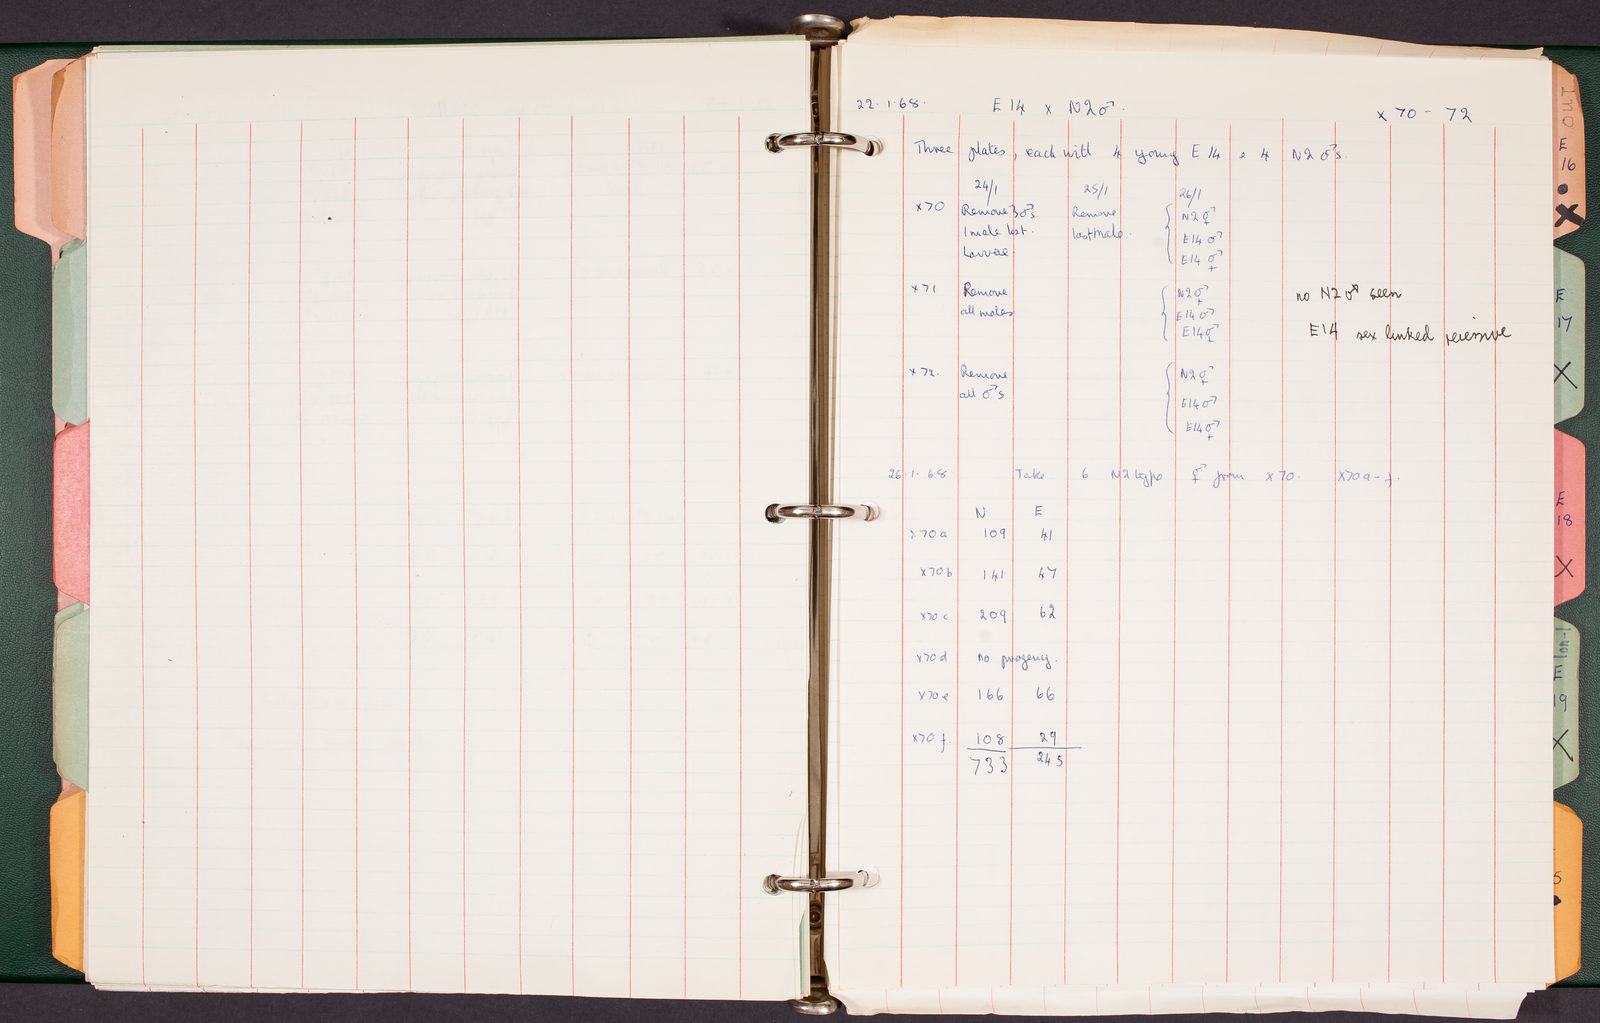 22.1.68. E14 x N2♂. x70-72
Three plates, each with 4 young E14 & 4 N2 ♂s.
24/1 25/1 26/1
x70 Remove 3♂s Remove { N2 ⚥
1 male lost. last male. E14 ♂
Larvae. E14 ⚥
x71 Remove { N2 ⚥ no N2 ♂ seen
all males E14 ♂
E14 ⚥ E14 sex linked recessive
x72. Remove { N2 ⚥
all ♂s E14 ♂
E14 ⚥
26.1.68. Take 6 N2 type ⚥ from x70. x70a-f.
N E
x70a 109 41
x70b 141 47
x70c 209 62
x70d no progeny.
x70e 166 66
x70f. 108 29
733 245
E
16
X
E
17
X
E
18
X
E
19
X
5